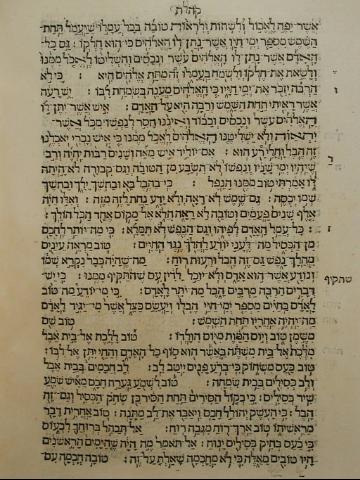 קהלת
אשר יפה לאכול ולשתות ולראות טובה בכל עמלו שיעמל תחת
השמש מספר ימי חייו אשר נתן לו האלהים כי הוא חלקו: גם כל
האדם אשר נתן לו האלהים עשר ונכסים והשליטו לאכל ממנו
ולשאת את חלקו ולשמח בעמלו זה מתת אלהים היא: כי לא
הרבה יזכר את ימי חייו כי האלהים מענה בשמחת לבו: יש רעה
ו
אשר ראיתי תחת השמש ורבה היא על האדם: איש אשר יתן לו
האלהים עשר ונכסים וכבוד ואיננו חסר לנפשו מכל אשר
יתאוה ולא ישליטנו האלהים לאכל ממנו כי איש נכרי יאכלנו
זה הבל וחלי רע הוא: אם יוליד איש מאה ושנים רבות יחיה ורב
שיהיו ימי שניו ונפשו לא תשבע מן הטובה וגם קבורה לא היתה
לו אמרתי טוב ממנו הנפל: כי בהבל בא ובחשך ילך ובחשך
שמו יכסה: גם שמש לא ראה ולא ידע נחת לזה מזה: ואלו חיה
אלף שנים פעמים וטובה לא ראה הלא אל מקום אחד הכל הולך:
כל עמל האדם לפיהו וגם הנפש לא תמלא: כי מה יותר לחכם
ז
מן הכסיל מה לעני יודע להלך נגד החיים: טוב מראה עינים
מהלך נפש גם זה הבל ורעות רוח: מה שהיה כבר נקרא שמו
ונודע אשר הוא אדם ולא יוכל לדין עם שהתקיף ממנו: כי יש
שתקיף
דברים הרבה מרבים הבל מה יתר לאדם: כי מי יודע מה טוב
לאדם בחיים מספר ימי חיי הבלו ויעשם כצל אשר מי יגיד לאדם
מה יהיה אחריו תחת השמש: טוב שם
משמן טוב ויום המות מיום הולדו: טוב ללכת אל בית אבל
מלכת אל בית משתה באשר הוא סוף כל האדם והחי יתן אל לבו:
טוב כעס משחוק כי ברע פנים ייטב לב: לב חכמים בבית אבל
ולב כסילים בבית שמחה: טוב לשמע גערת חכם מאיש שמע
שיר כסילים: כי כקול הסירים תחת הסיר כן שחק הכסיל וגם זה
הבל: כי העשק יהולל חכם ויאבד את לב מתנה: טוב אחרית דבר
מראשיתו טוב ארך רוח מגבה רוח: אל תבהל ברוחך לכעוס
כי כעס בחיק כסילים ינוח: אל תאמר מה היה שהימים הראשנים
היו טובים מאלה כי לא מחכמה שאלת על זה: טובה חכמה עם